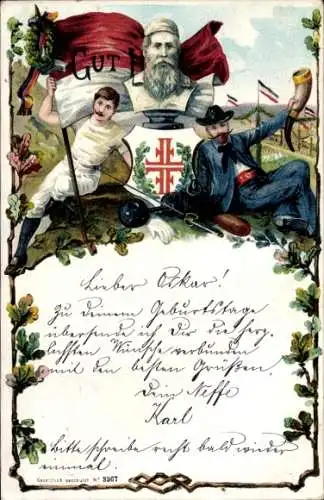 GUT H
Lieber Oskar!
Zu deinem Geburtstage
übersende ich Dir die herz-
lichsten Wünsche verbunden
mit den besten Grüssen.
Dein Neffe
Karl
Bitte schreibe recht bald wieder
einmal.
Gesetzlich geschützt No 3367